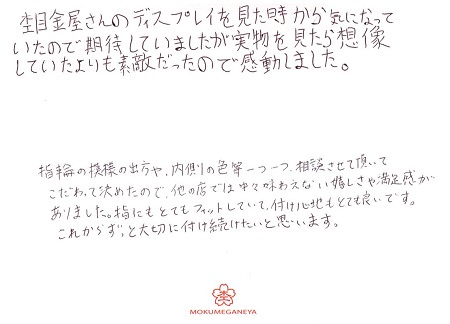 杢目金屋さんのディスプレイを見た時から気になって
いたので期待していましたが実物を見たら想像
していたよりも素敵だったので感動しました。
指輪の模様の出方や、内側の色等一つ一つ、相談させて頂いて
こだわって決めたので、他の店では中々味わえない嬉しさや満足感が
ありました。指にもとてもフィットしていて、付け心地もとても良いです。
これからずっと大切に付け続けたいと思います。
MOKUMEGANEYA